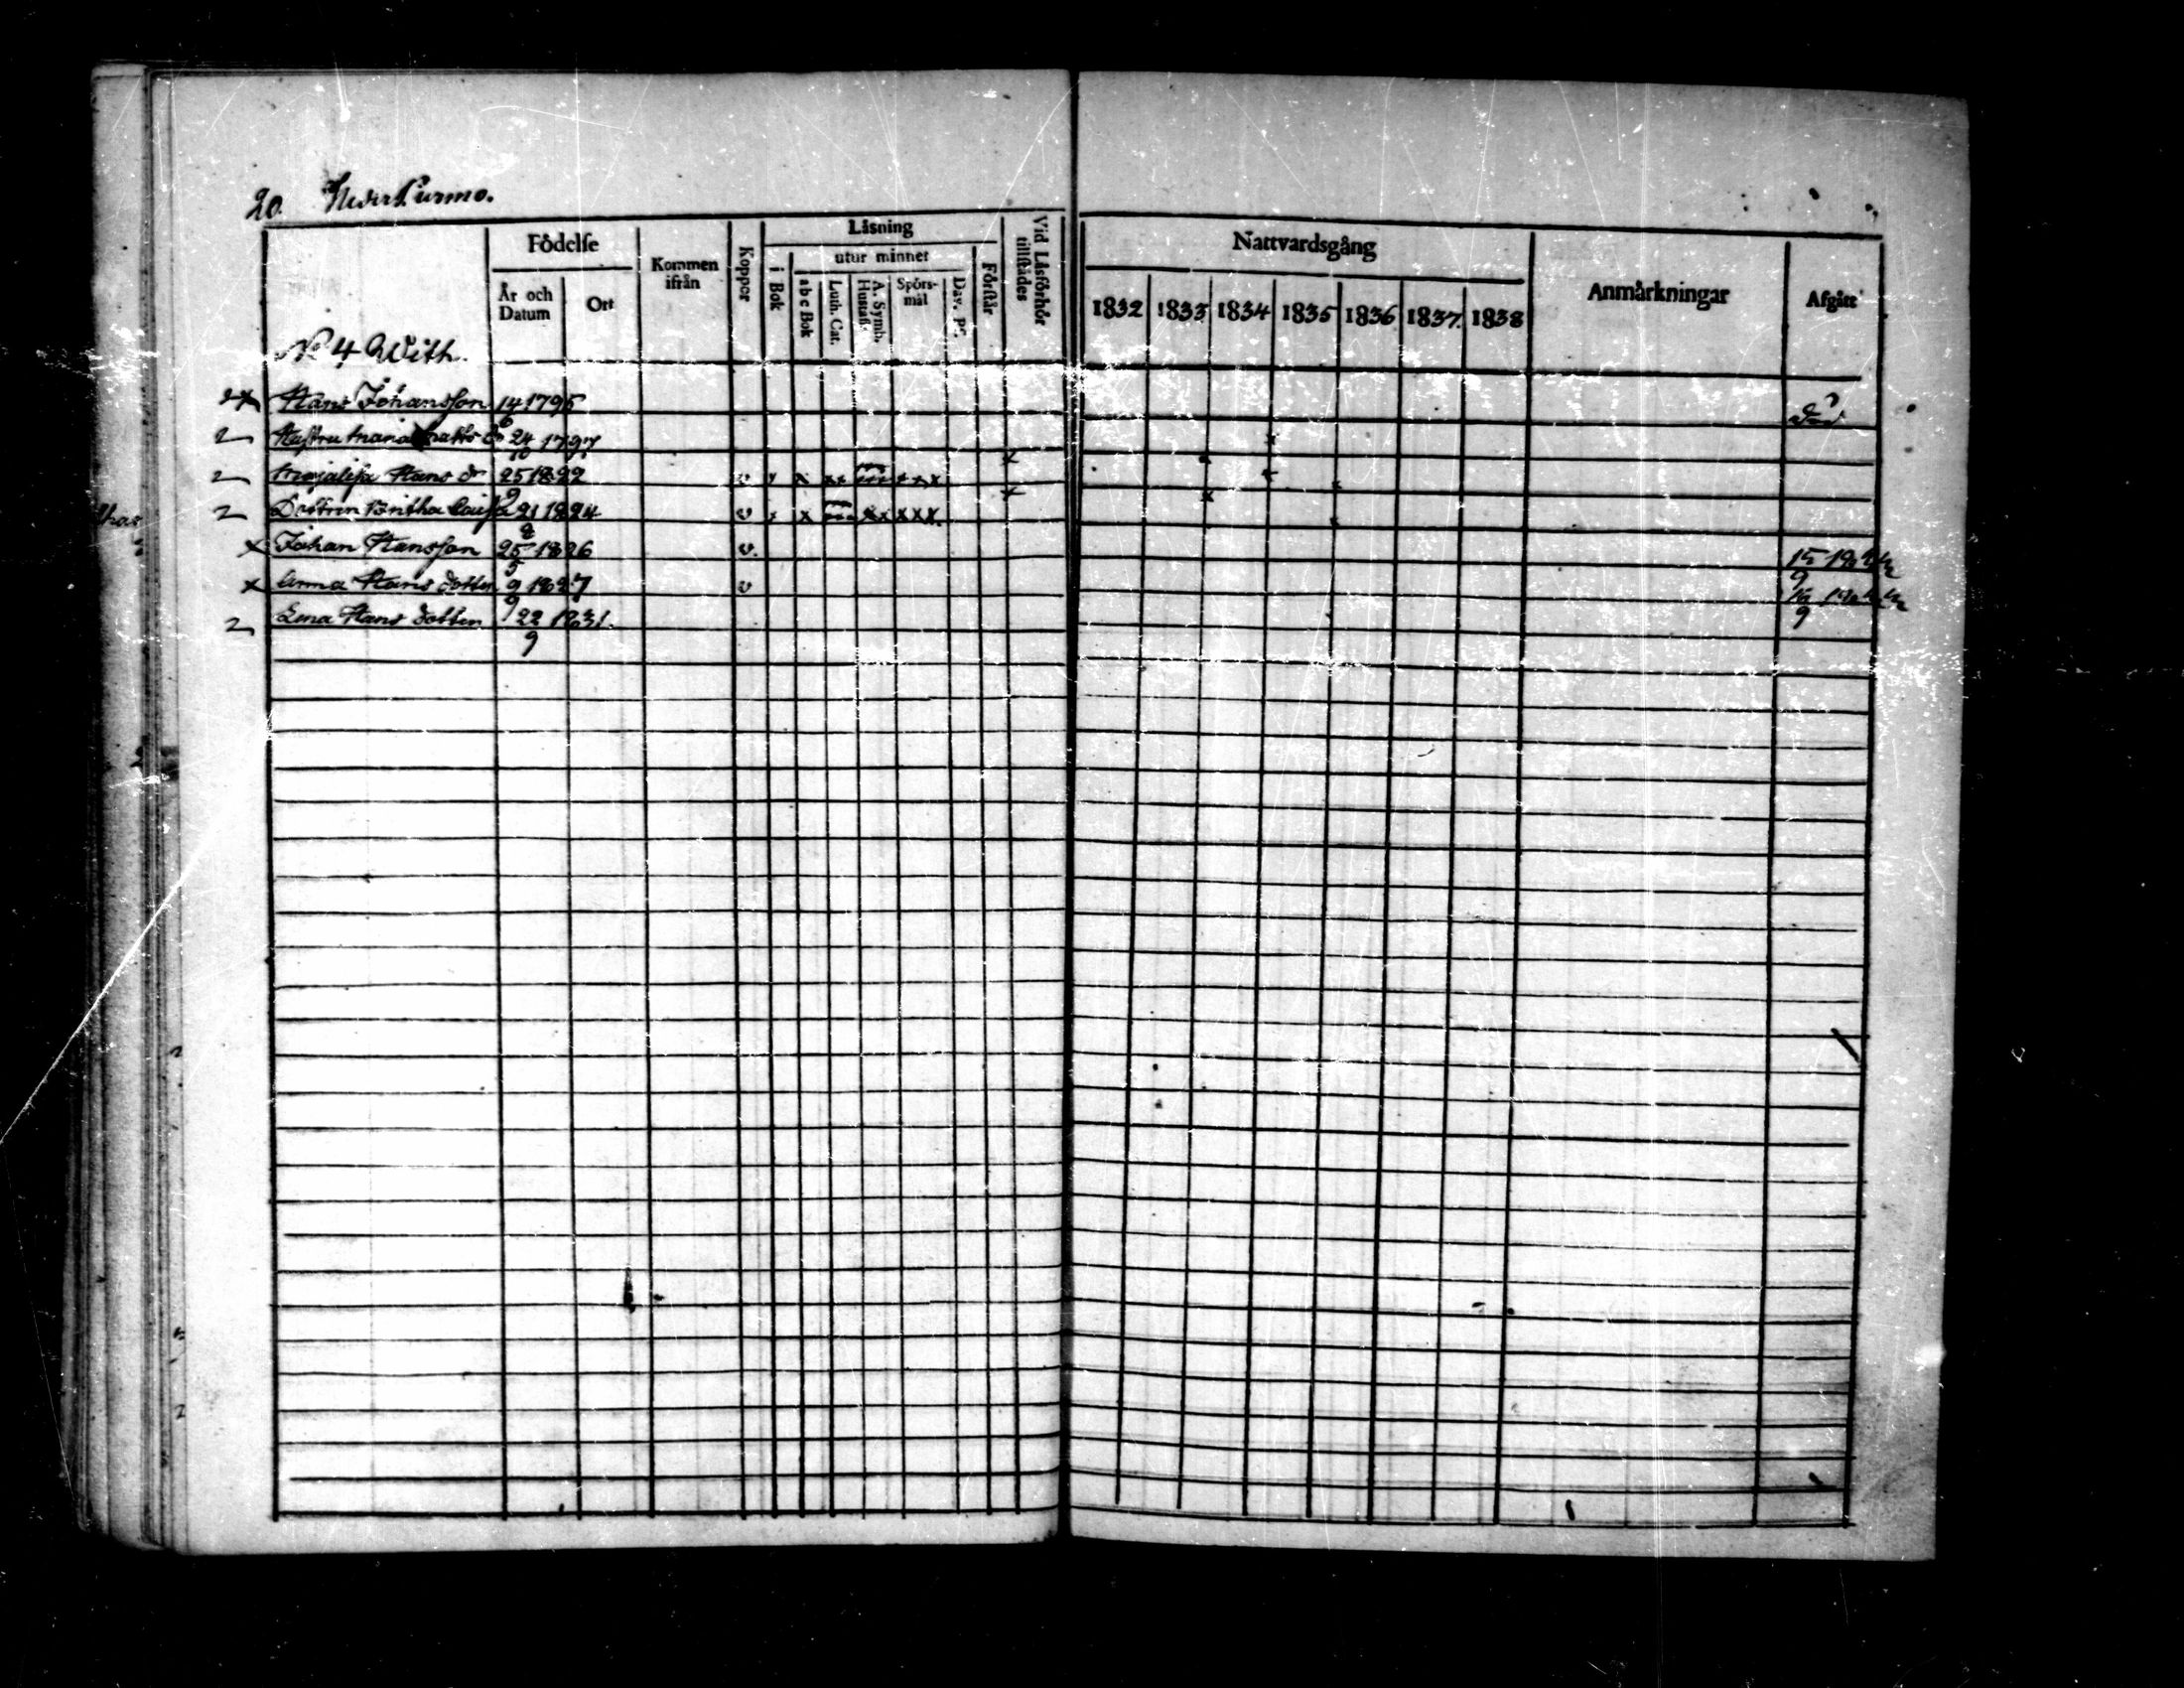 20. Neder Purmo.
Födelse Kommen ifrån Koppor Läsning Vid Läsförhör tillstädes Nattvardsgång Anmärkningar Afgått
År och Datum Ort i Bok utur minnet Förstår
a b c Bok Luth. Cat. A. Symb. Hustafl. Spörsmål Dav. Ps.
1832 1833 1834 1835 1836 1837. 1838
No 4 With.
Hans Johansson 14 1795 död
6
2 Hustru Maria Matts dr 24 1797
10
2 Hans dr 25 1822 v x x xx x x x
9
2 Dottren Britha Caisa 21 1824 v x x xx xxx
Johan Hansson 25 1826 v. 15
x 5 9
x Anna Hans dotter 9 1827 v 16
9 9
2 Lena Hans dotter 22 1831.
9